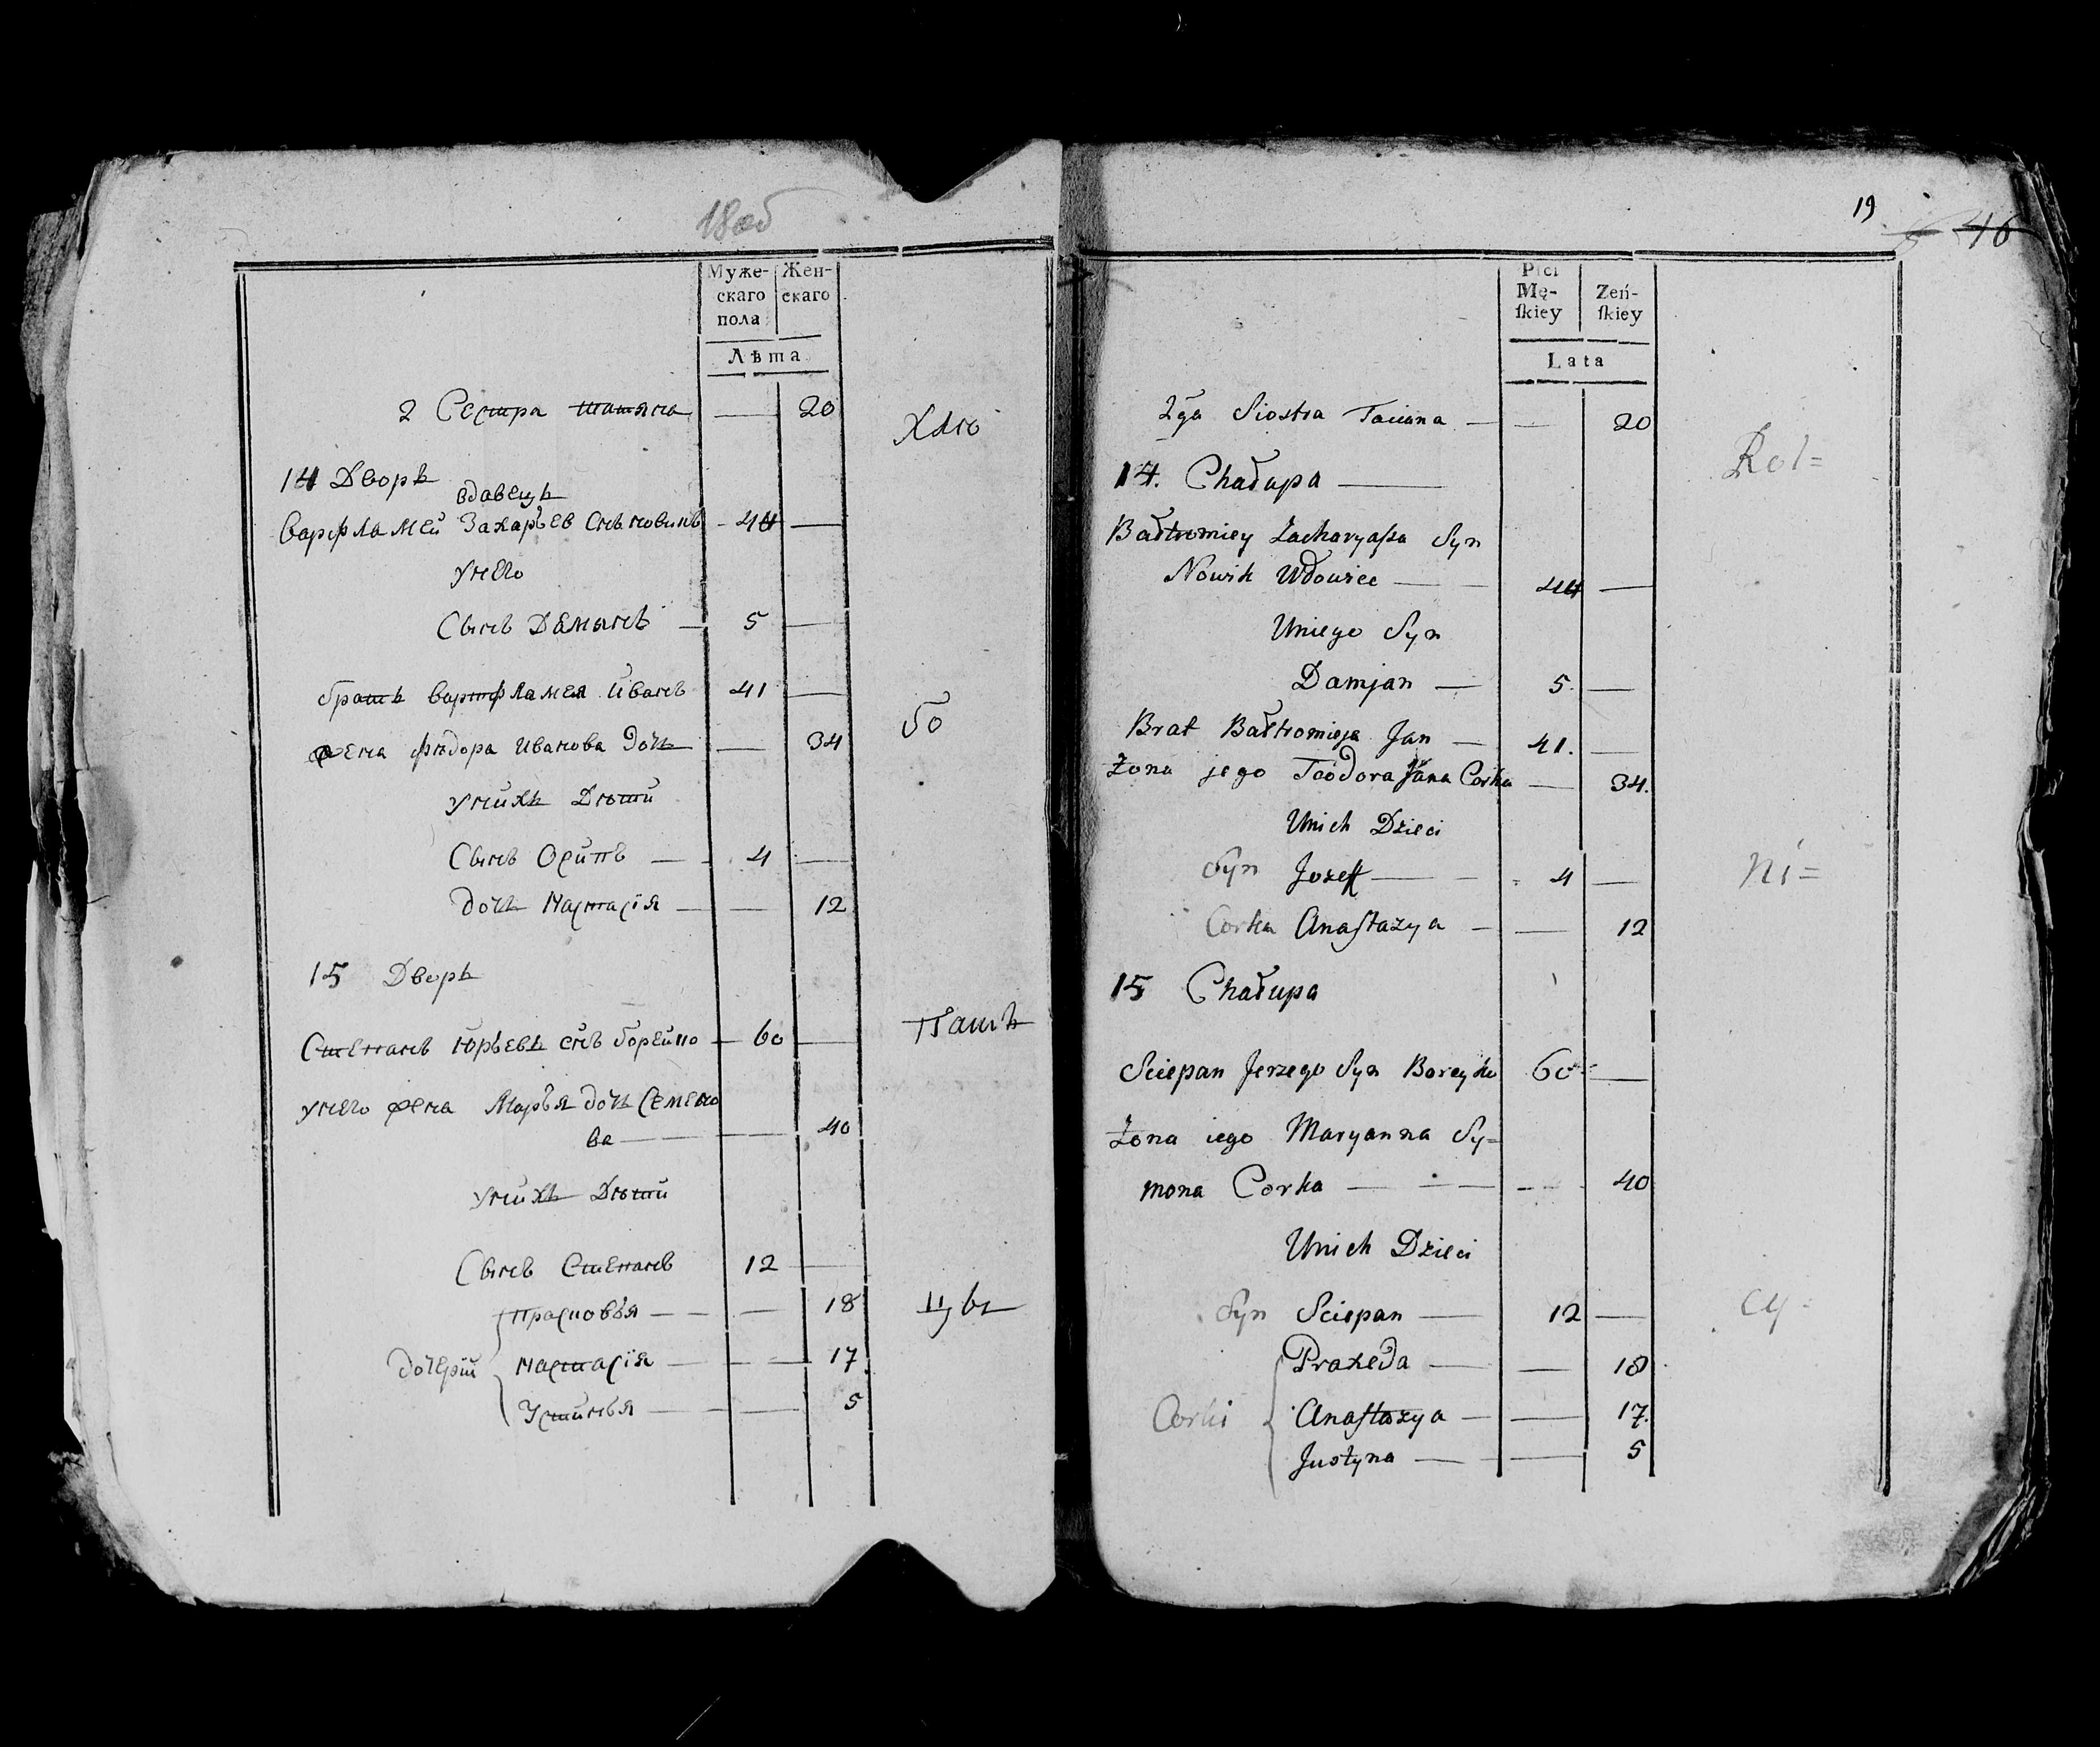 18об
Муже-
скаго
пола
Жен-
скаго
Лѣта
2 Сестра татяна — 20
Хлѣ
14 Дворъ
вдавецъ
Варфламей Захарьев Снъ новикъ - 44 —
унего
Сынъ Дамьянъ — 5 —
братъ вартфламея иванъ 41 —
бо
жена фѣдора иванова дочь — 34
унихъ Дѣти
Сынъ Осипъ — 4 —
дочь настасія — — 12
15 Дворъ
пашъ
Степанъ юрьевъ снъ борейко — 60 —
унего жена Марья дочь Семено
ва — — 40
унихъ Дѣти
Сынъ Степанъ 12 —
прасковья — — 18
цы
дочерїй настасїя — — 17
Устинья — — 5
19
46
Płci
Mę-
ſkiey
Zeń-
ſkiey
Lata
2ga Siostra Taciana — — 20
Rol=
14. Chałupa —
Bałtromiey Zacharyaſza Syn
Nowik Wdowiec — 44 —
Uniego Syn
Damjan — 5. —
Brat Bałtromieja Jan — 41. —
Żona jego Teodora Jana Corka — 34.
Unich Dzieci
Syn Jozeff — 4 —
ni=
Corka Anaſtazya — — 12
15 Chałupa
Sciepan Jerzego Syn Boreyko 60 —
Żona iego Maryanna Sy=
mona Corka — — 40
Unich Dzieci
Syn Sciepan — 12 —
cy=
Praxeda — — 18
Corki Anaſtazya — — 17.
Justyna — — 5